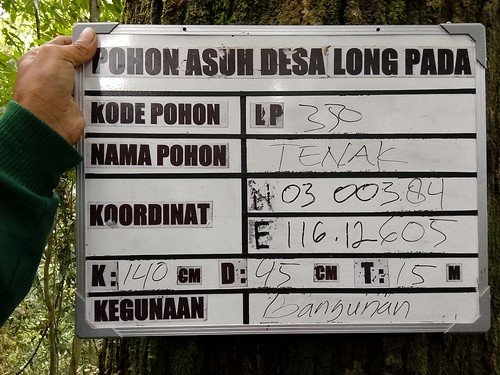 POHON ASUH DESA LONG PADA
KODE POHON LP 330
NAMA POHON TENAK
KOORDINAT N 03 003.84
E 116.12605
K: 140 CM D: 45 CM T: 15 M
KEGUNAAN Bangunan